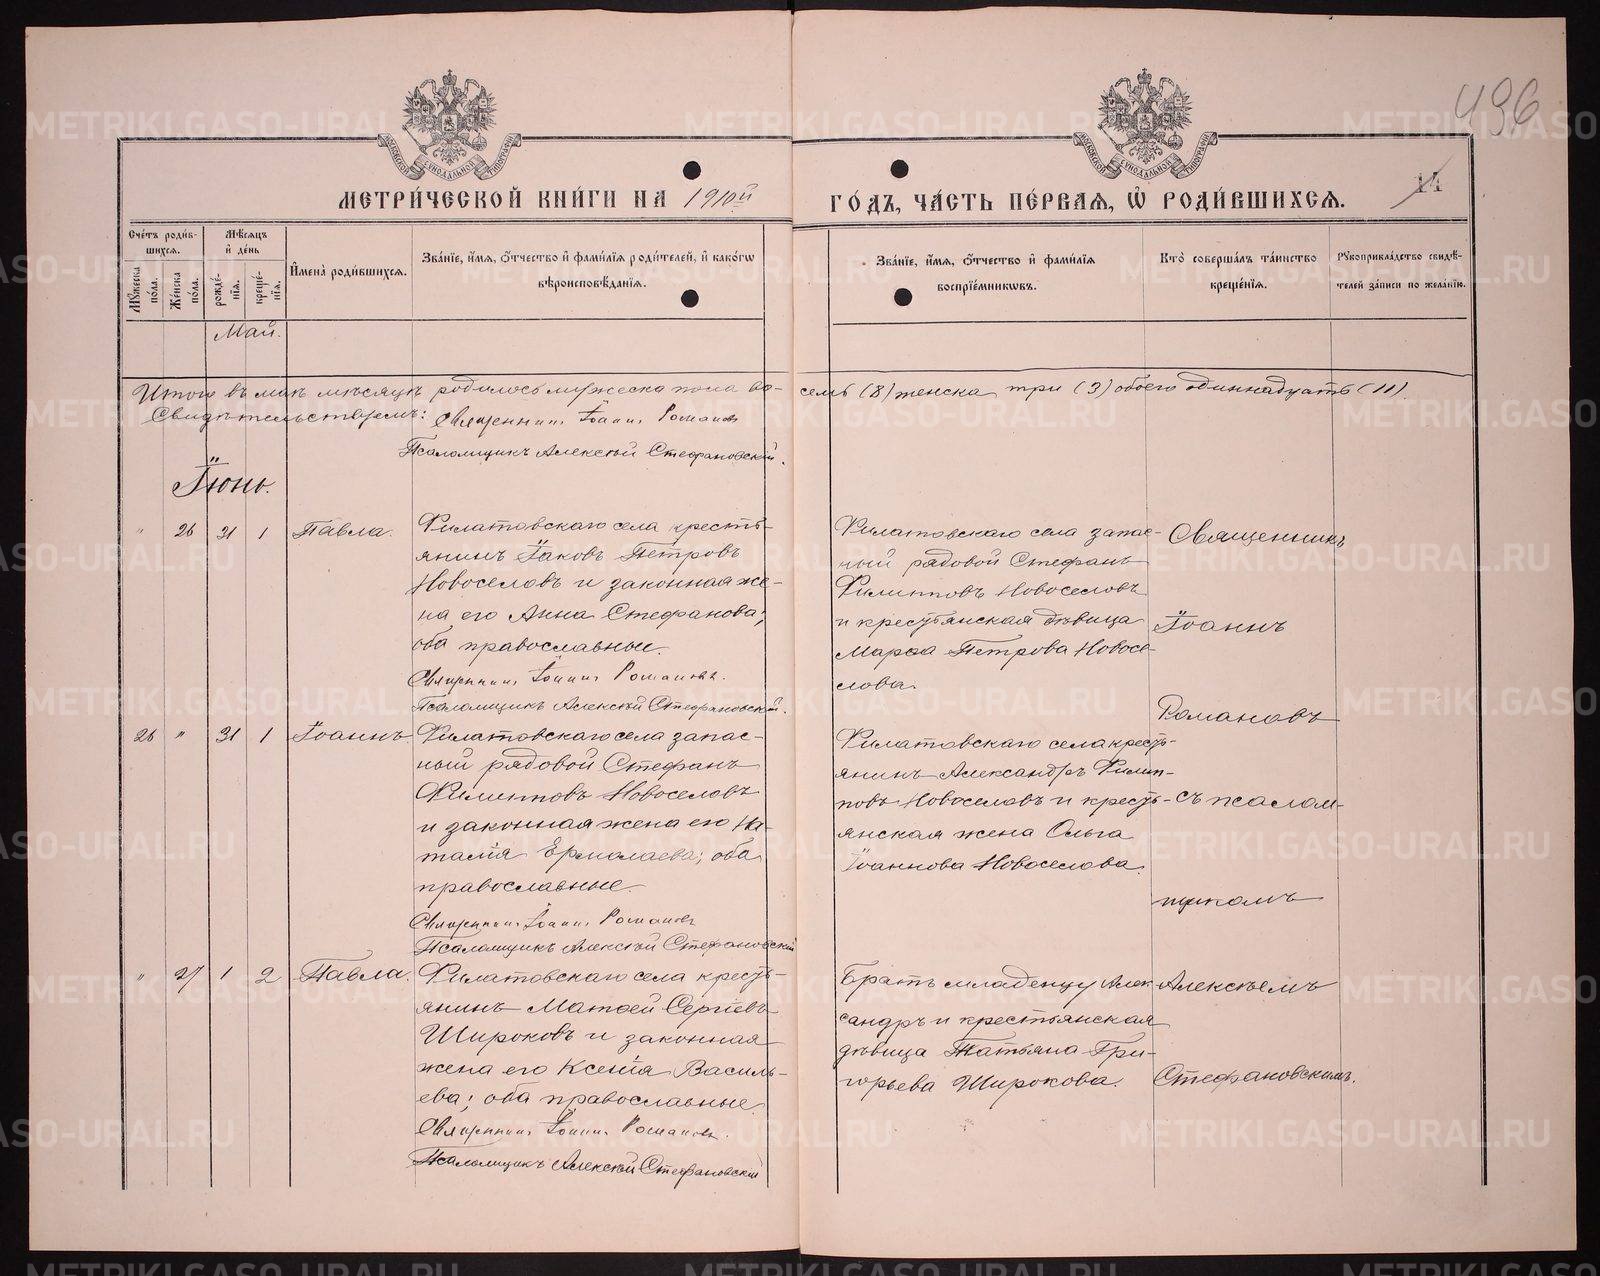 496
МЕТРИ́ЧЕСКОЙ КНИ́ГИ НА 1910й ГО́ДЪ, ЧА́СТЬ ПЕ́РВАЯ, Ѡ РОДИ́ВШИХСЯ.
Сче́тъ роди́в-
шихся.
Мѣ́сяцъ
и҆ де́нь
Мꙋ́жеска
по́ла.
Же́нска
по́ла.
рожде́-
нїя.
креще́-
нїя.
И҆мена̀ роди́вшихся.
Зва́нїе, и҆́мя, ѻ҆́тчество и҆ фами́лїя роди́телей, и҆ како́гѡ
вѣроисповѣ́данїя.
Зва́нїе, и҆́мя, ѻ҆́тчество и҆ фами́лїя
воспрїе́мникѡвъ.
Кто̀ соверша́лъ та́инство
креще́нїя.
Рꙋкоприкла́дство свидѣ́-
телей за́писи по жела́нїю.
Май.
Итого въ маѣ мѣсяцѣ родилось мужеска пола во-
семь (8) женска три (3) обоего одиннадцать (11).
Свидѣтельствуемъ: Священникъ Іоаннъ Романовъ
Псаломщикъ Алексѣй Стефановскій.
Іюнь.
" 26 31 1 Павла.
Филатовскаго села кресть-
янинъ Іаковъ Петровъ
Новоселовъ и законная же-
на его Анна Стефанова;
оба православные.
Священникъ Іоаннъ Романовъ.
Псаломщикъ Алексѣй Стефановскій.
Филатовскаго села запас-
ный рядовой Стефанъ
Филипповъ Новоселовъ
и крестьянская дѣвица
Марѳа Петрова Новосе-
лова.
Священникъ
Іоаннъ
Романовъ
26 " 31 1 Іоаннъ
Филатовскаго села запас-
ный рядовой Стефанъ
Филипповъ Новоселовъ
и законная жена его На-
талія Ермолаева; оба
православные.
Священникъ Іоаннъ Романовъ
Псаломщикъ Алексѣй Стефановскій
Филатовскаго села кресть-
янинъ Александръ Филип-
повъ Новоселовъ и кресть-
янская жена Ольга
Іоаннова Новоселова.
съ псалом-
щикомъ
" 27 1 2 Павла.
Филатовскаго села кресть-
янинъ Матѳей Сергіевъ
Широковъ и законная
жена его Ксенія Василь-
ева; оба православные.
Священникъ Іоаннъ Романовъ.
Псаломщикъ Алексѣй Стефановскій
Братъ младенцу Алек
сандръ и крестьянская
дѣвица Татьяна Гри-
горьева Широкова.
Алексѣемъ
Стефановскимъ.
METRIKI.GASO-URAL.RU